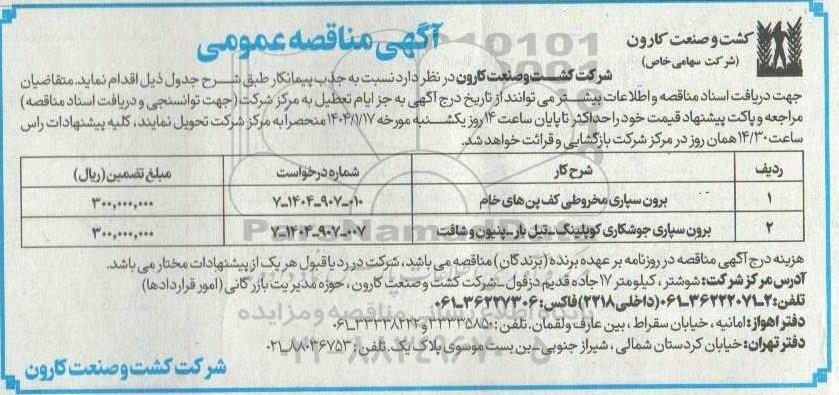 کشت و صنعت کارون
(شرکت سهامی خاص)
آگهی مناقصه عمومی
شرکت کشت و صنعت کارون در نظر دارد نسبت به جذب پیمانکار طبق شرح جدول ذیل اقدام نماید. متقاضیان
جهت دریافت اسناد مناقصه و اطلاعات بیشتر می توانند از تاریخ درج آگهی به جز ایام تعطیل به مرکز شرکت (جهت توانسنجی و دریافت اسناد مناقصه)
مراجعه و پاکت پیشنهاد قیمت خود را حداکثر تا پایان ساعت ۱۴ روز یکشنبه مورخه ۱۴۰۴/۱/۱۷ منحصرا به مرکز شرکت تحویل نمایند، کلیه پیشنهادات راس
ساعت ۱۴/۳۰ همان روز در مرکز شرکت بازگشایی و قرائت خواهد شد.
ردیف شرح کار شماره درخواست مبلغ تضمین (ریال)
۱ برون سپاری مخروطی کف پن های خام ۷-۱۴۰۴-۹۰۷-۰۱۰ ۳۰۰,۰۰۰,۰۰۰
۲ برون سپاری جوشکاری کوپلینگ - تیل بار - پنیون و شافت ۷-۱۴۰۴-۹۰۷-۰۰۷ ۳۰۰,۰۰۰,۰۰۰
هزینه درج آگهی مناقصه در روزنامه بر عهده برنده (برندگان) مناقصه می باشد، شرکت در رد یا قبول هر یک از پیشنهادات مختار می باشد.
آدرس مرکز شرکت: شوشتر، کیلومتر ۱۷ جاده قدیم دزفول - شرکت کشت و صنعت کارون، حوزه مدیریت بازرگانی (امور قراردادها)
تلفن: ۲-۳۶۲۲۲۰۷۱-۰۶۱ (داخلی ۲۲۱۸) فاکس: ۳۶۲۲۷۳۰۶-۰۶۱
دفتر اهواز: امانیه، خیابان سقراط، بین عارف و لقمان. تلفن: ۳۳۳۳۵۸۵۰ و ۳۳۳۳۸۲۲۲-۰۶۱
دفتر تهران: خیابان کردستان شمالی، شیراز جنوبی - بن بست موسوی پلاک یک. تلفن: ۸۸۰۳۶۷۵۳-۰۲۱
شرکت کشت و صنعت کارون